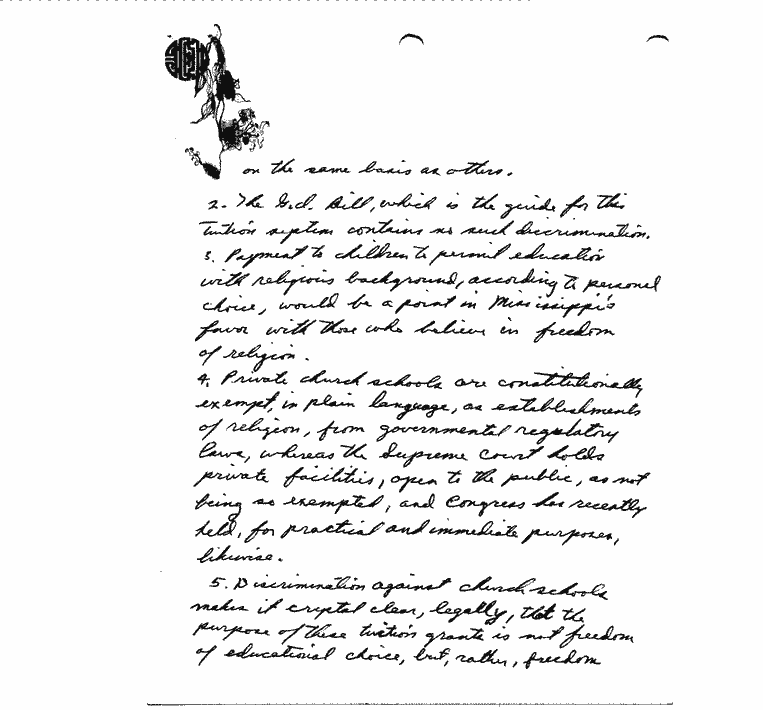 on the same basis as others.
2. The G.I. Bill, which is the guide for this
tuition system contains no such discrimination.
3. Payment to children to permit education
with religious background, according to personal
choice, would be a point in Mississippi's
favor with those who believe in freedom
of religion.
4. Private church schools are constitutionally
exempt, in plain language, as establishments
of religion, from governmental regulatory
laws, whereas the Supreme Court holds
private facilities, open to the public, as not
being so exempted, and Congress has recently
held, for practical and immediate purposes,
likewise.
5. Discrimination against church schools
makes it crystal clear, legally, that the
purpose of these tuition grants is not freedom
of educational choice, but, rather, freedom